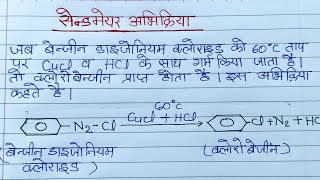 सेन्डमेयर अभिक्रिया
जब बेन्जीन डाइजोनियम क्लोराइड को 60°C ताप
पर CuCl व HCl के साथ गर्म किया जाता है।
तो क्लोरोबेन्जीन प्राप्त होता है। इस अभिक्रिया
कहते है।
60°C
N₂-Cl CuCl + HCl Cl + N₂ + HC
बेन्जीन डाइजोनियम (क्लोरोबेंजीन)
क्लोराइड)